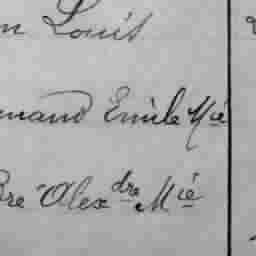 n Louis
nand Emile M^cé
Bre Alex^dre M^cié